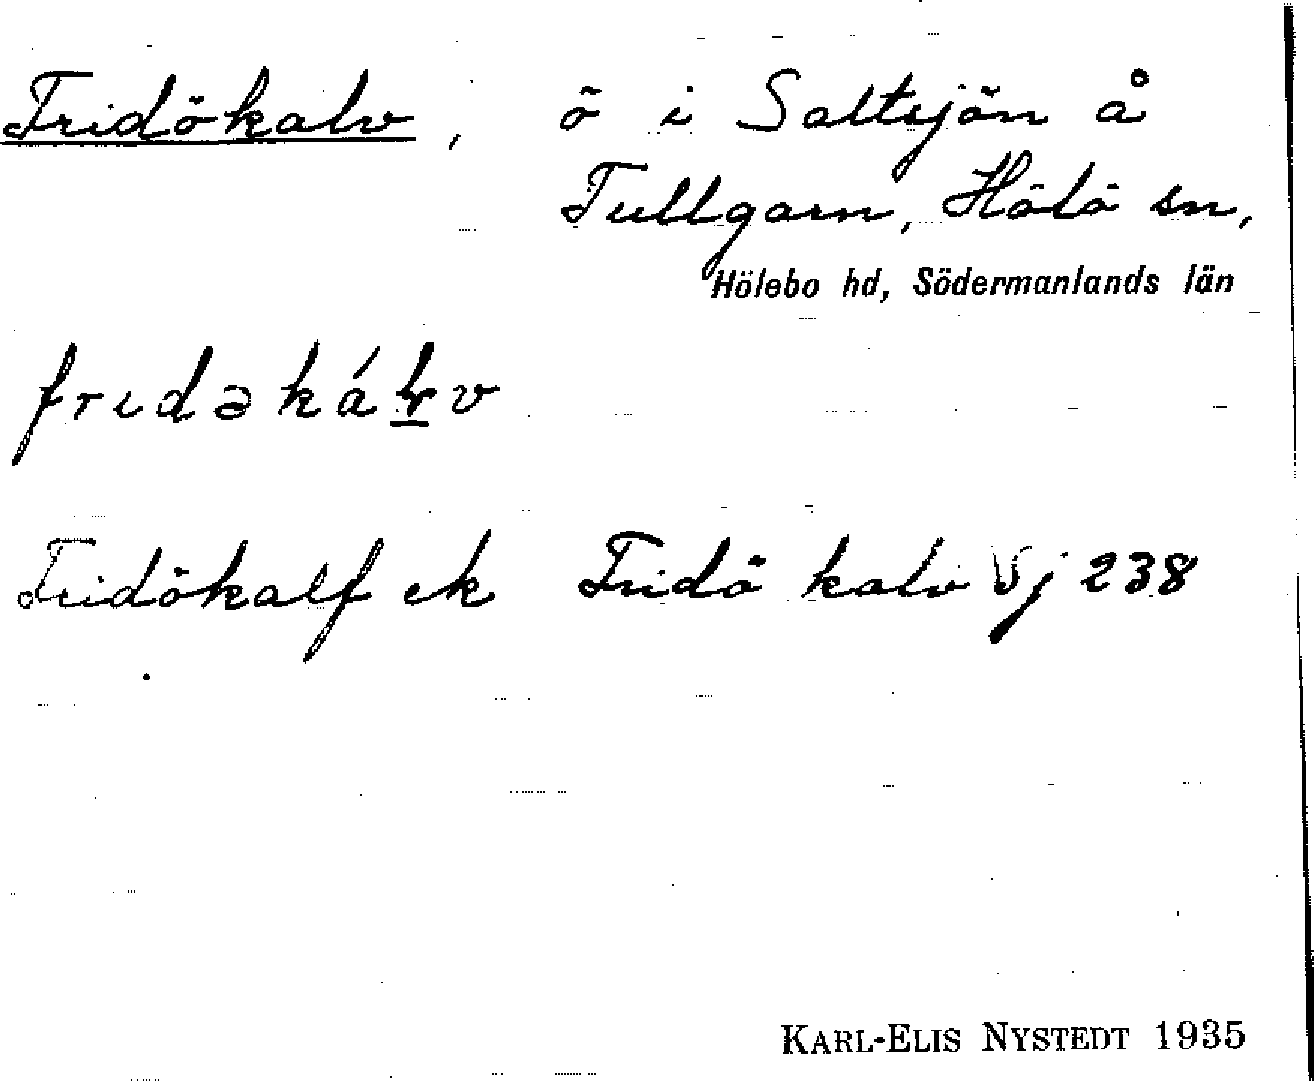 Fridökalv, ö i Saltsjön å
Tullgarn, Hölö sn,
Hölebo hd, Södermanlands län
fridəkálv
Fridökalf ek Fridö kalv Sj 238
KARL-ELIS NYSTEDT 1935